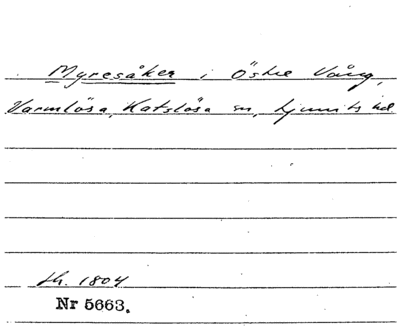 Myresåker i Östre Vång,
Varmlösa, Katslösa sn, Ljunits hd
sk. 1804
Nr 5663.